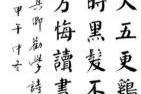 火五更鷄
時黑髮不
方悔讀書
真卿勸學詩
甲午中冬